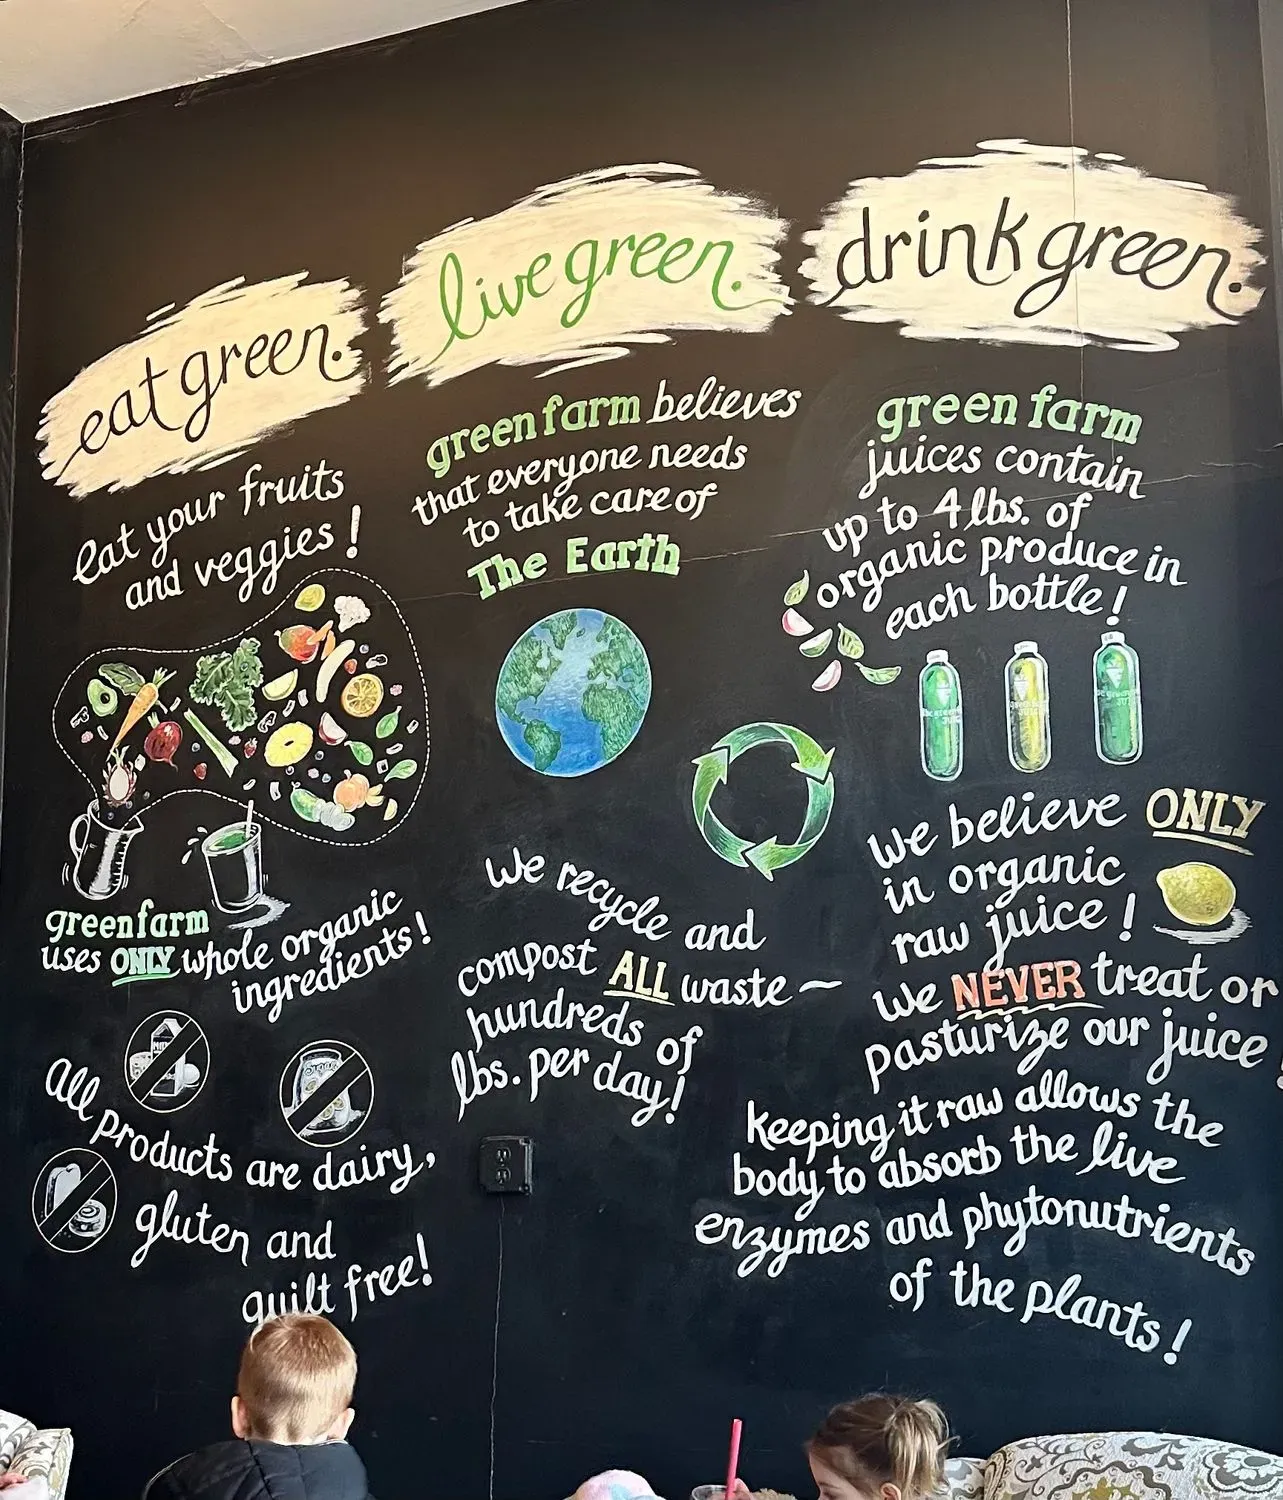 eat green.
eat your fruits
and veggies!
greenfarm
uses ONLY whole organic
ingredients!
All products are dairy,
gluten and
guilt free!
live green.
green farm believes
that everyone needs
to take care of
The Earth
We recycle and
compost ALL waste ~
hundreds of
lbs. per day!
drink green.
green farm
juices contain
up to 4 lbs. of
organic produce in
each bottle!
We believe ONLY
in organic
raw juice!
We NEVER treat or
pasturize our juice
keeping it raw allows the
body to absorb the live
enzymes and phytonutrients
of the plants!